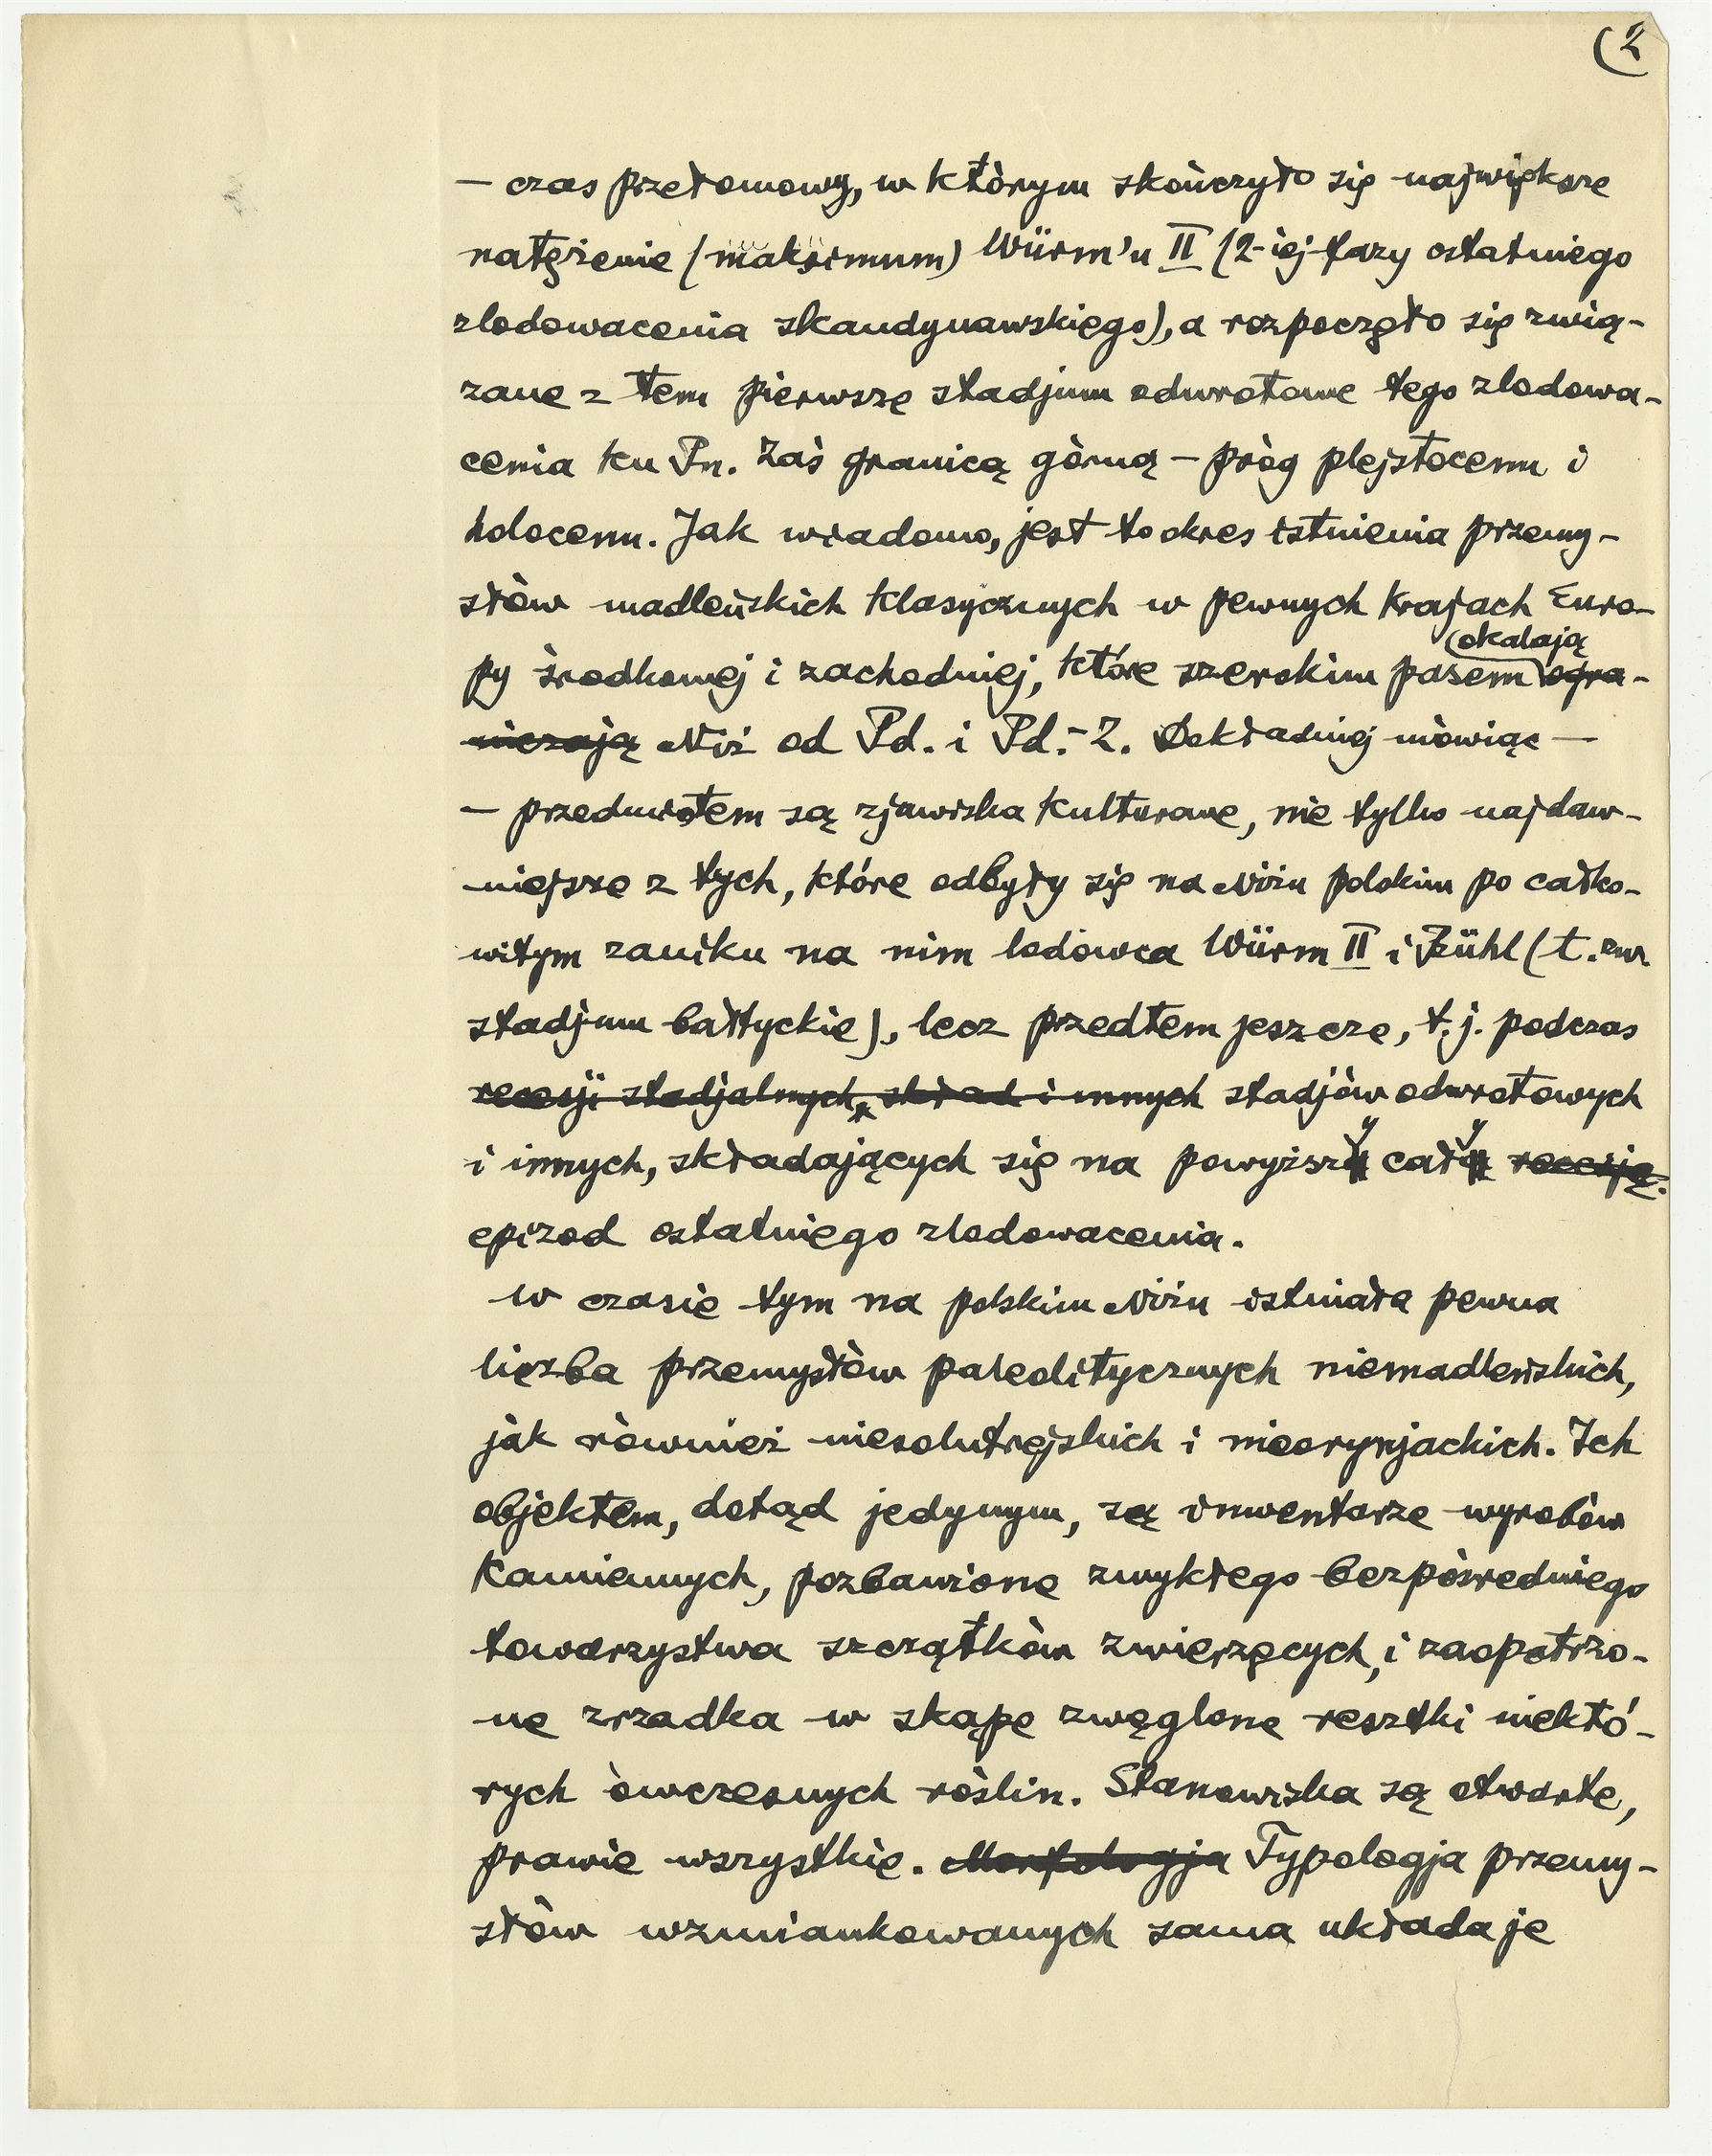 (2
— czas przełomowy, w którym skończyło się największe
natężenie (maksimum) Würm'u II (2-iej fazy ostatniego
zlodowacenia skandynawskiego), a rozpoczęło się zwią-
zane z tem pierwsze stadjum odwrotowe tego zlodowa-
cenia ku Pn. Zaś granicą górną — próg plejstocenu i
holocenu. Jak wiadomo, jest to okres istnienia przemy-
słów madleńskich klasycznych w pewnych krajach Euro-
okalają
py środkowej i zachodniej, które szerokim pasem ogra-
niczają Niż od Pd. i Pd.-Z. Dokładniej mówiąc —
— przedmiotem są zjawiska kulturowe, nie tylko najdaw-
niejsze z tych, które odbyły się na Niżu polskim po całko-
witym zaniku na nim lodowca Würm II i Bühl (t. zw.
stadjum bałtyckie), lecz przedtem jeszcze, t.j. podczas
recesji stadjalnych, skład i innych stadjów odwrotowych
i innych, składających się na powyższy cały recesję.
epizod ostatniego zlodowacenia.
W czasie tym na polskim Niżu istniała pewna
liczba przemysłów paleolitycznych niemadleńskich,
jak również niesolutrejskich i nieorynjackich. Ich
objektem, dotąd jedynym, są inwentarze wyrobów
kamiennych, pozbawione zwykłego bezpośredniego
towarzystwa szczątków zwierzęcych, i zaopatrzo-
ne zrzadka w skąpe zwęglone resztki niektó-
rych ówczesnych roślin. Stanowiska są otwarte,
prawie wszystkie. Morfologja Typologja przemy-
słów wzmiankowanych sama układa je